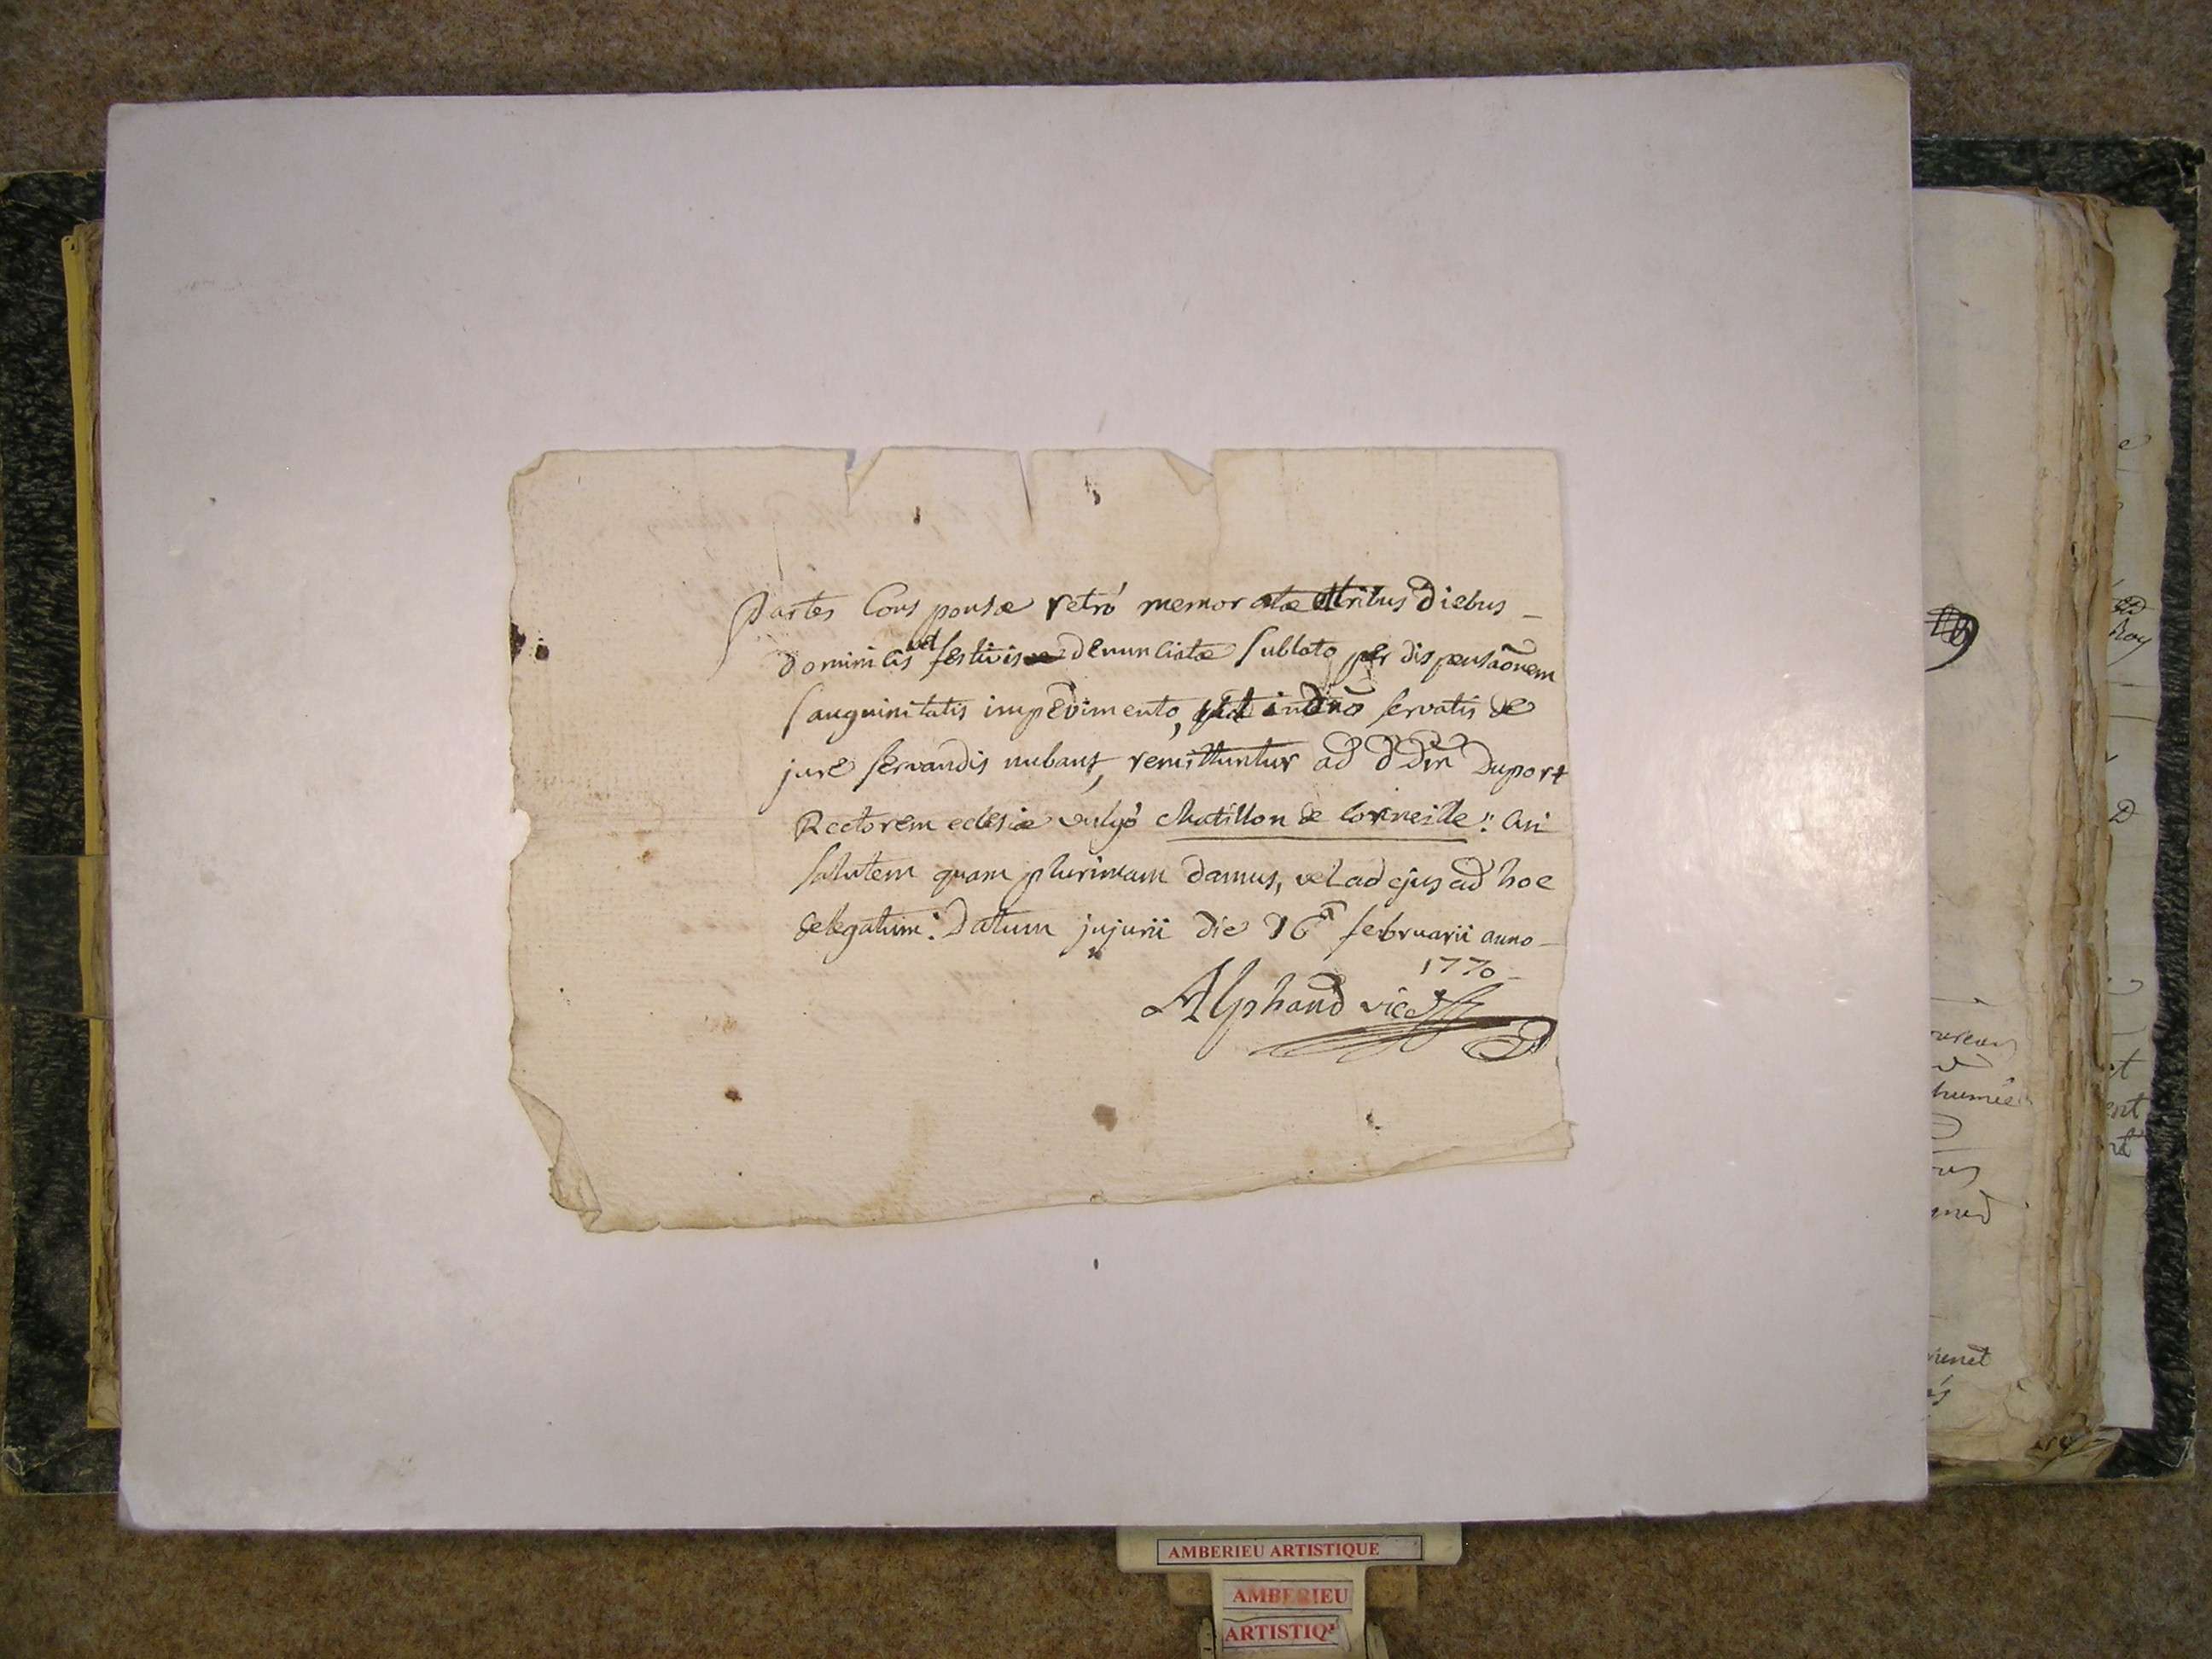 Partes Consponsæ retró memoratæ tribus diebus
dominicis vel festivis denunciatæ sublato per dispensãonem
sanguinitatis impedimento, ut in dño servatis de
jure servandis nubant, remittuntur ad D Dm̃ Duport
Rectorem eclesiæ vulgó chatillon de Corneille: Cui
salutem quam plurimam damus, vel ad ejus ad hoc
delegatum: Datum jujurii die 16ã februarii anno
1770
Alphand vic
AMBERIEU ARTISTIQUE
AMBERIEU
ARTISTIQ
humée